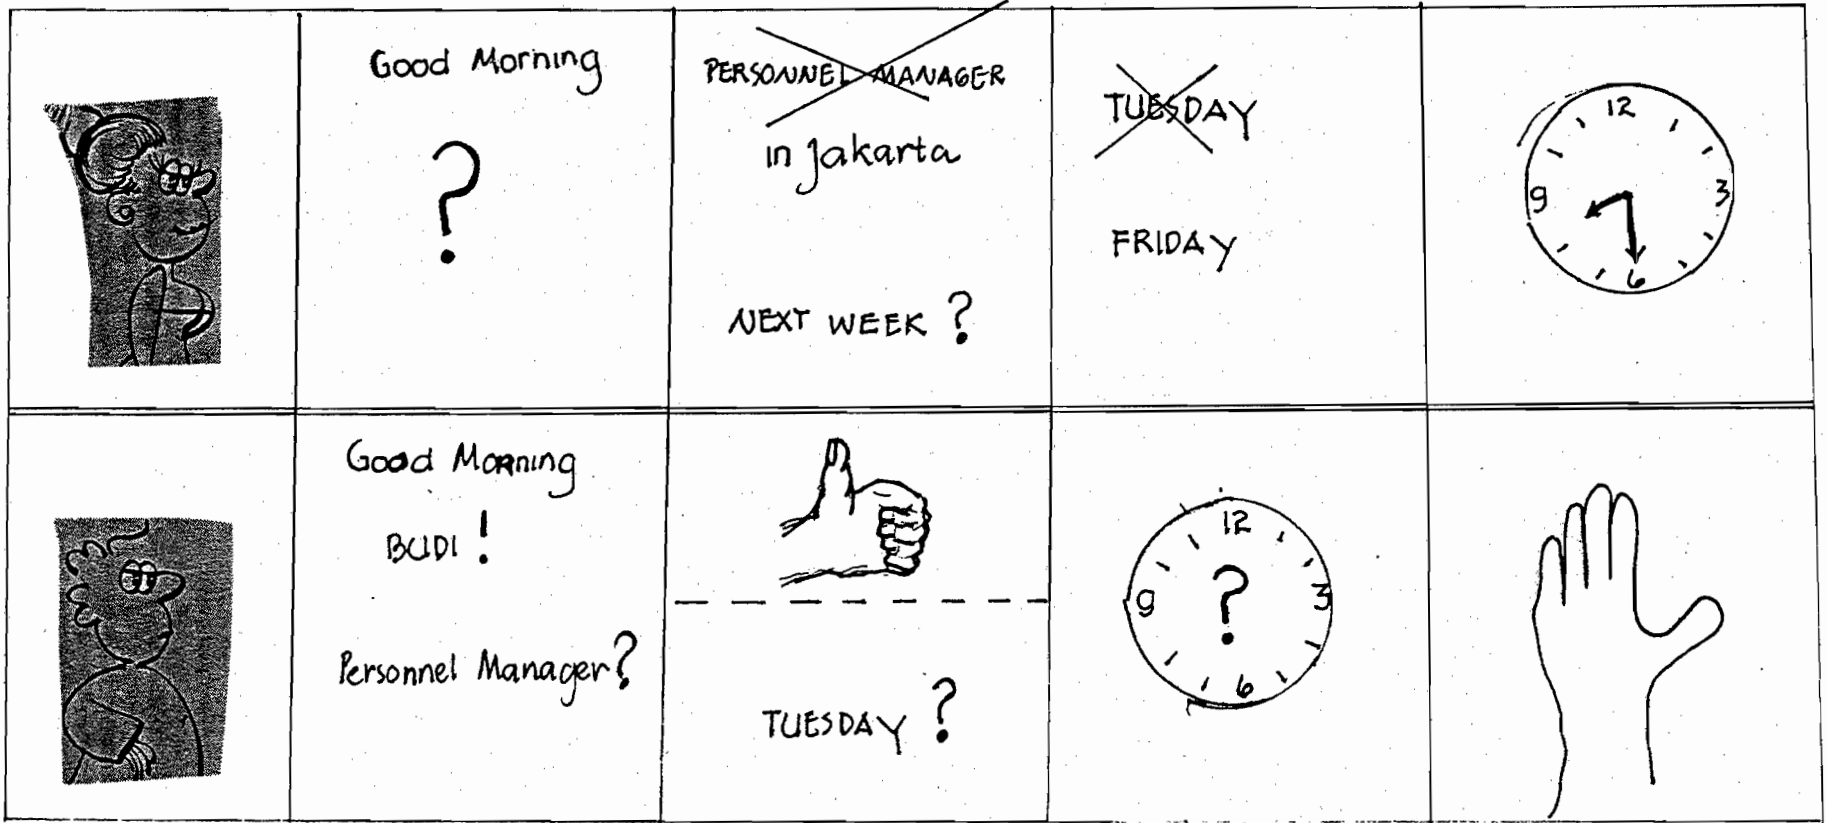 Good Morning
?
PERSONNEL MANAGER
in Jakarta
NEXT WEEK ?
TUESDAY
FRIDAY
12
9 3
6
Good Morning
BUDI !
Personnel Manager?
TUESDAY ?
12
9 ? 3
6